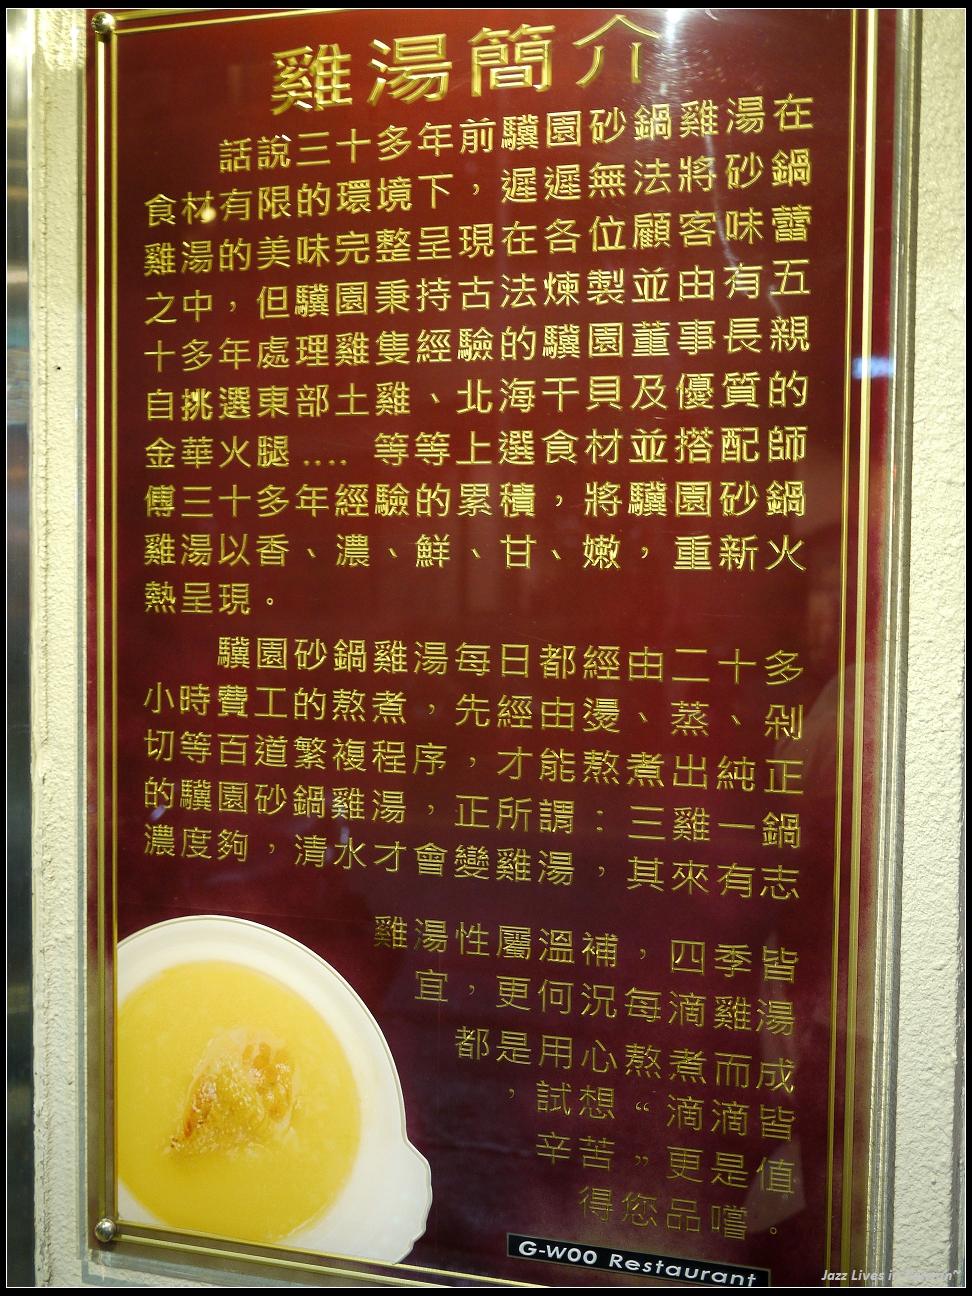 雞湯簡介
話說三十多年前驥園砂鍋雞湯在
食材有限的環境下，遲遲無法將砂鍋
雞湯的美味完整呈現在各位顧客味蕾
之中，但驥園秉持古法煉製並由有五
十多年處理雞隻經驗的驥園董事長親
自挑選東部土雞、北海干貝及優質的
金華火腿.... 等等上選食材並搭配師
傅三十多年經驗的累積，將驥園砂鍋
雞湯以香、濃、鮮、甘、嫩，重新火
熱呈現。
驥園砂鍋雞湯每日都經由二十多
小時費工的熬煮，先經由燙、蒸、剁
切等百道繁複程序，才能熬煮出純正
的驥園砂鍋雞湯，正所謂：三雞一鍋
濃度夠，清水才會變雞湯，其來有志
雞湯性屬溫補，四季皆
宜，更何況每滴雞湯
都是用心熬煮而成
，試想“滴滴皆
辛苦”更是值
得您品嚐。
G-WOO Restaurant
Jazz Lives in